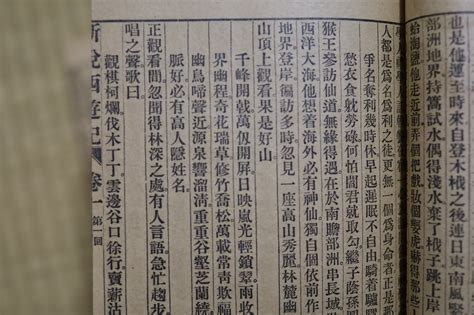 也是他運至時來自登木桄之後連日東南風緊
部洲地界持篙試水偶得淺水棄了桄子跳上岸
他走近前弄個把戲
人都是爲名爲利之徒更無一個爲身命者正是那
爭名奪利幾時休早起遲眠不自由騎着驢騾
愁衣食躭勞碌何怕閻君就取勾繼子蔭孫圖
猴王參訪仙道無緣得遇在於南贍部洲串長城
西洋大海他想着海外必有神仙獨自個依前作
地界登岸徧訪多時忽見一座高山秀麗林麓幽
山頂上觀看果是好山
千峰開戟萬仭開屏日映嵐光輕鎖翠雨
界幽程奇花瑞草修竹喬松萬載常靑欺福
幽鳥啼聲近源泉響溜淸重重谷壑芝蘭繞
脈好必有高人隱姓名
正觀看間忽聞得林深之處有人言語急忙趨步
唱之聲歌曰
觀棋柯爛伐木丁丁雲邊谷口徐行賣薪沽
新說西遊記 卷一 第一回